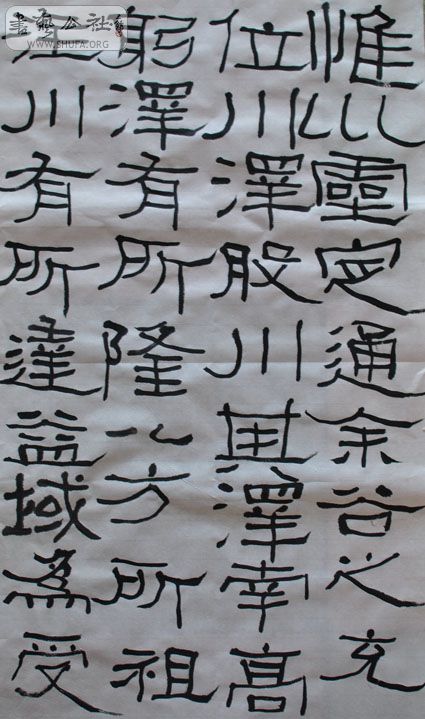 惟巛靈定通余谷之充
位川澤股川其澤南高
躬澤有所隆八方所祖
川有所達益域為受
書藝公社
WWW.SHUFA.ORG